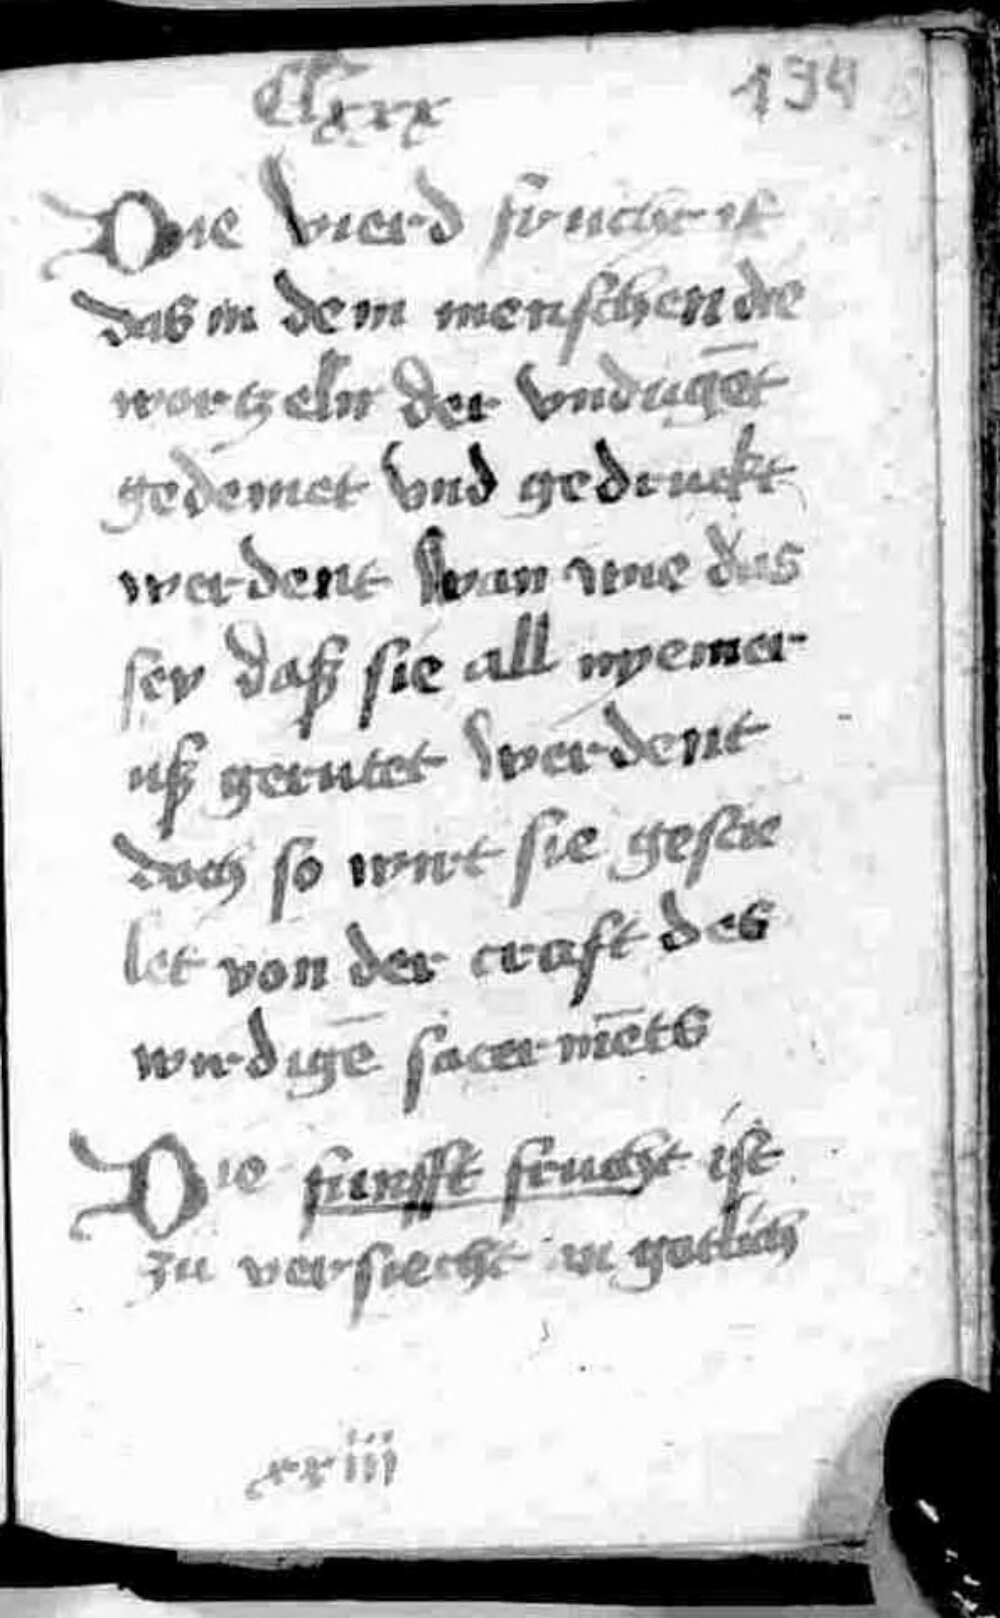 Clxxx 194
Die vierd frucht ist
das in dem menschen die
wortzeln der vndugēt
gedemet vnd gedruckt
werdent wan wie das
sey daß sie all nyemer
uß gerutet werdent
doch so wirt sie gesce
let von der craft des
wirdigē sacermēts
Die funfft frucht ist
zu versiecht in gotlich
xxiii